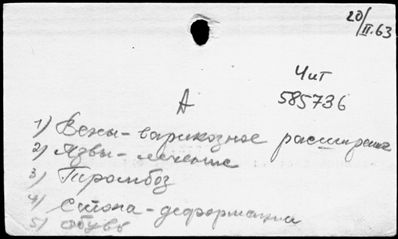 20/II.63
Чит
585736
А
1) Вены - варикозное расширение
2) Язвы - лечение
3) Тромбоз
4) Стопа - деформации
5) Обувь